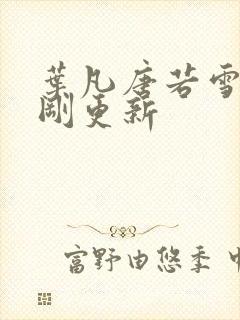 葉凡唐若雪
剛更新
富野由悠季 中